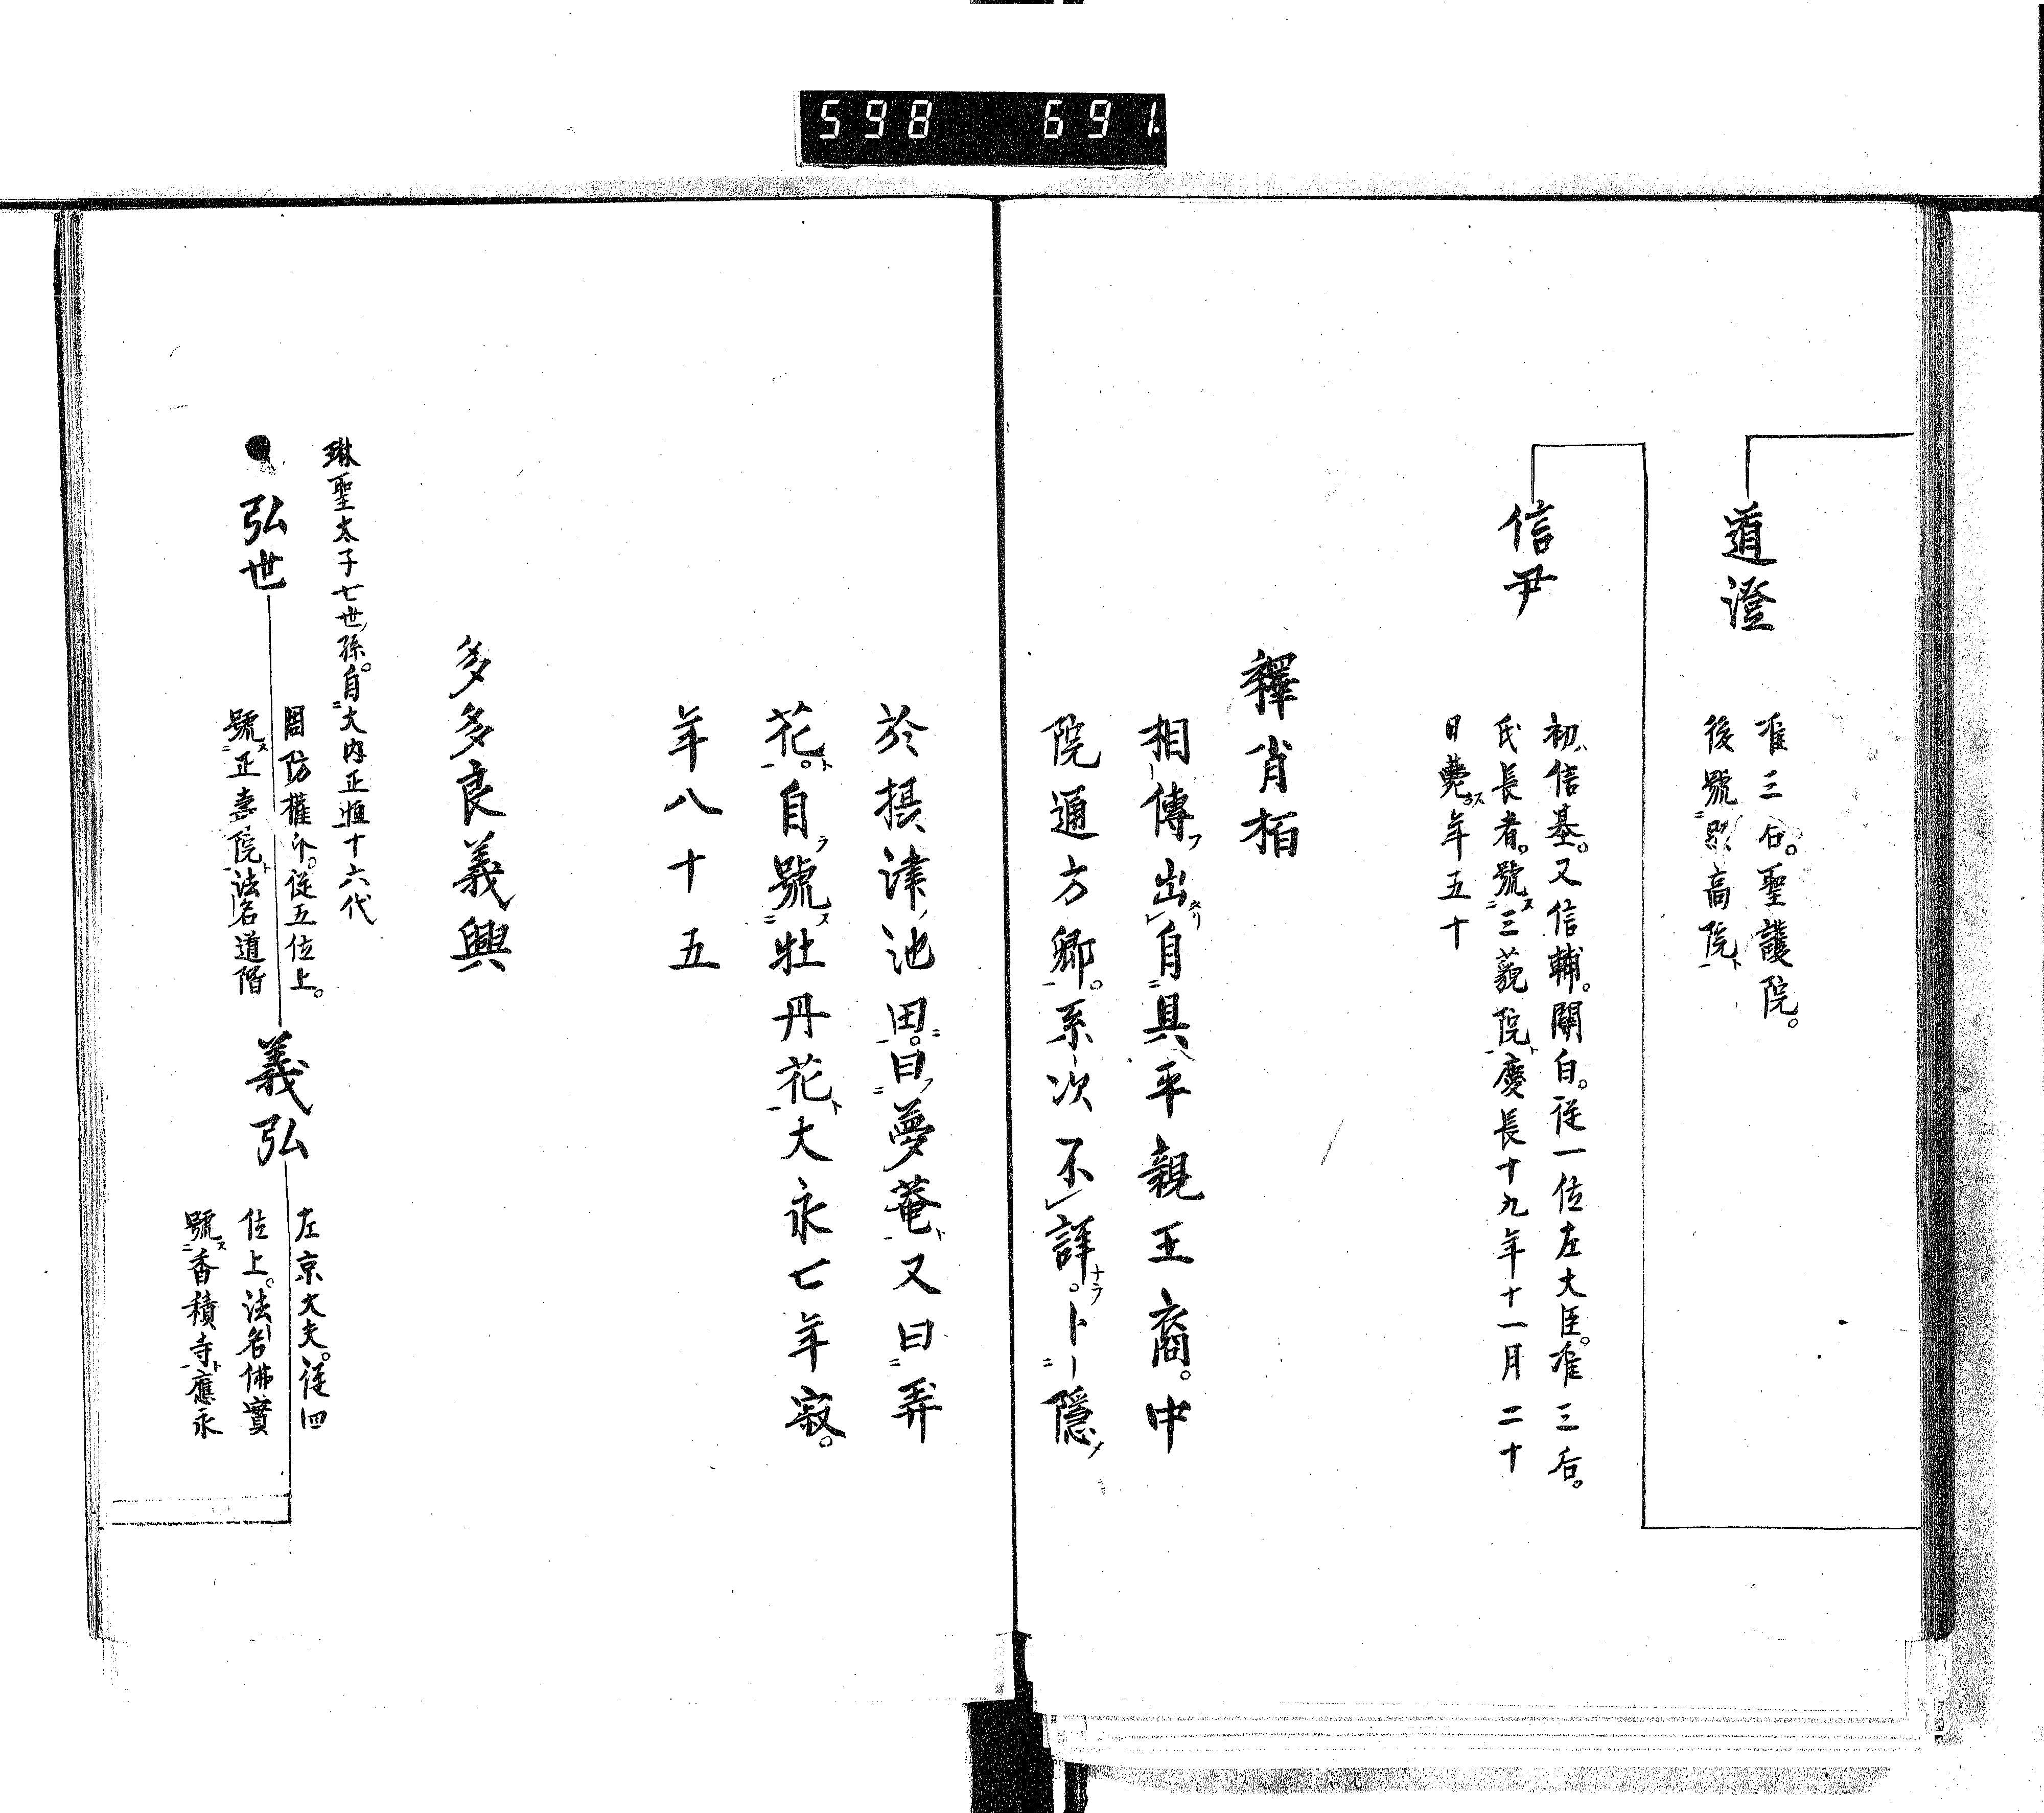 598 691.
道澄
准三后。聖護院。
後號照高院
信尹
初信基。又信輔。關白。従一位左大臣。准三后。
氏長者。號三藐院慶長十九年十一月二十
日薨年五十
釋肖栢
相傳出自具平親王裔。中
院通方卿。系次不詳。卜隱
於摂津池田。曰夢菴又曰弄
花。自號牡丹花大永七年寂。
年八十五
多多良義興
琳聖太子七世孫。自大内正恒十六代
弘世
周防權介。従五位上。
號正壽院法名道階
義弘
左京大夫。従四
位上。法名佛實
號香積寺應永